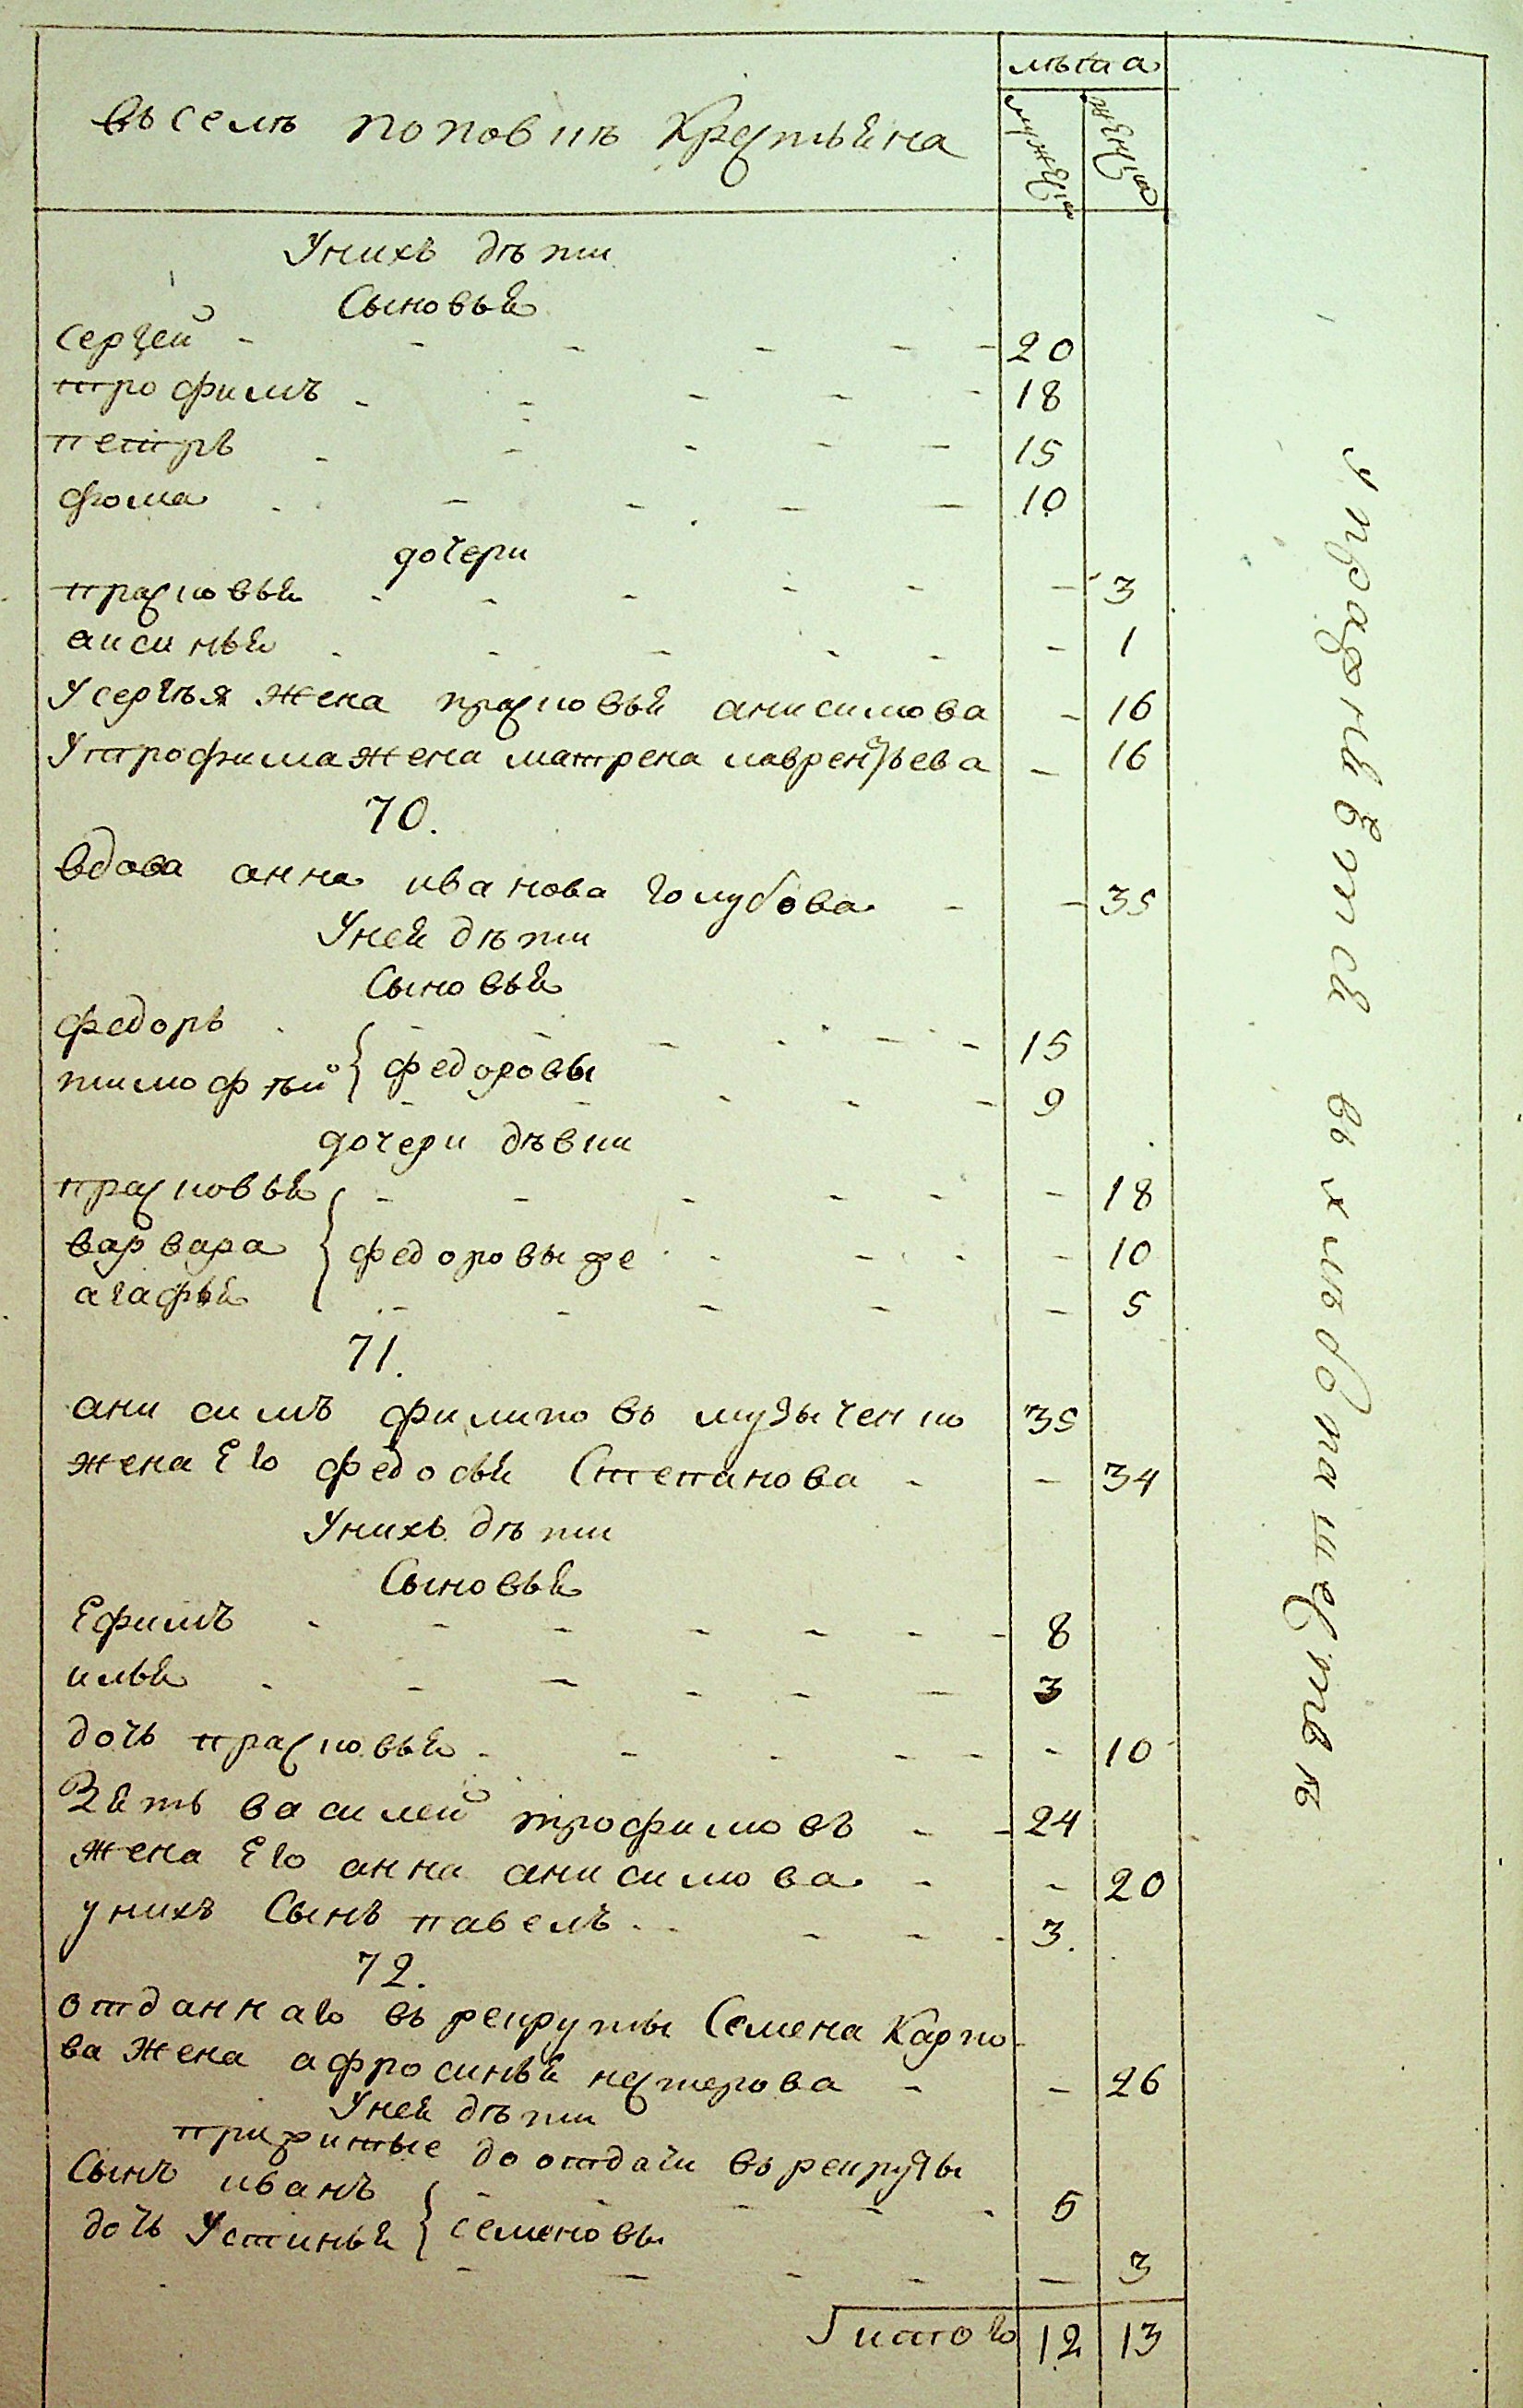 въ селѣ поповкѣ крестьяна
лѣта
мужеска
женска
У нихъ дѣти
Сыновья
Сергей - - - - - - 20
трофимъ - - - - - 18
петръ - - - - - 15
фома - - - - - 10
дочери
прасковья - - - - - - 3
аксинья - - - - - - 1
У сергѣя жена прасковья анисимова - 16
У трофима жена матрена лаврентьева - 16
70.
вдова анна иванова голубова - - 35
У ней дѣти
Сыновья
федоръ - - - - - - 15
тимофѣй { федоровы - - - - - 9
дочери дѣвки
прасковья - - - - - - 18
варвара { федоровы же - - - - 10
агафья - - - - - 5
71.
анисимъ филиповъ музыченко 35
жена Его федосья Степанова - - 34
У нихъ дѣти
Сыновья
Ефимъ - - - - - - - 8
илья - - - - - - 3
дочь прасковья - - - - - - 10
Зять василей трофимовъ - - 24
жена Его анна анисимова - - 20
у нихъ Сынъ павелъ - - - - 3.
72.
отданнаго въ рекруты Семена Карпо-
ва жена афросинья нестерова - - 26
У ней дѣти
прижитые до отдачи въ рекруты
Сынъ иванъ - - - - - 5
дочь Устинья { семеновы
- - - - - 3
Итого 12 13